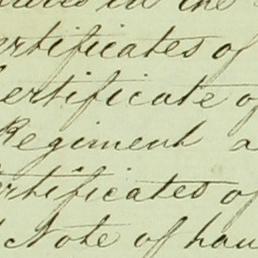 in the
ertificates of
ertificate of
Regiment a
ertificates of
Note of han